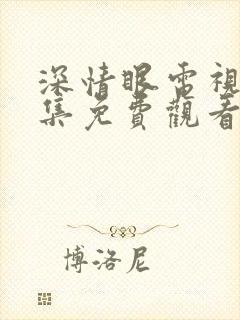 深情眼電視
集免費觀看
博洛尼